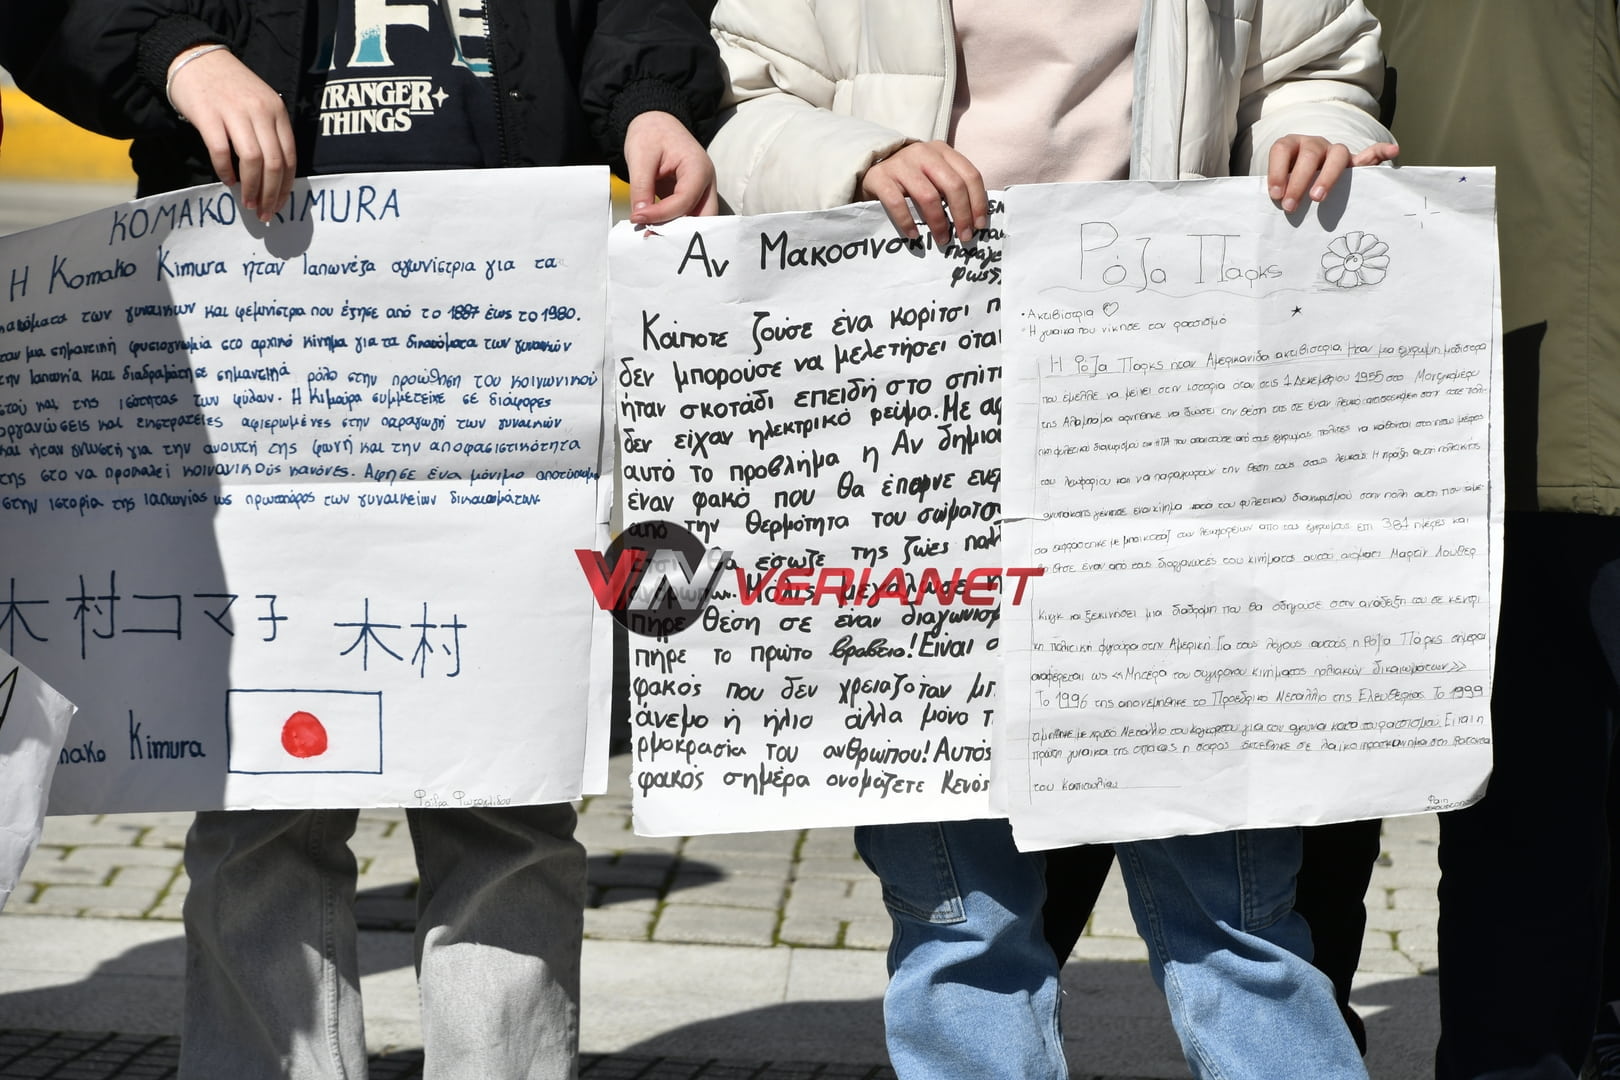 STRANGER
THINGS
KOMAKO KIMURA
Η Komako Kimura ήταν Ιαπωνέζα αγωνίστρια για τα
των γυναικών και φεμινίστρια που έζησε από το 1887 έως το 1980.
μια σημαντική φυσιογνωμία στο αρχικό κίνημα για τα δικαιώματα των γυναικών
την Ιαπωνία και διαδραμάτησε σημαντικό ρόλο στην προώθηση του κοινωνικού
και της ισότητας των φύλων. Η Κιμούρα συμμετείχε σε διάφορες
οργανώσεις και εκστρατείες αφιερωμένες στην παραγωγή των γυναικών
και ήταν γνωστή για την ανοιχτή της φωνή και την αποφασιστικότητα
της στο να προκαλεί κοινωνικούς κανόνες. Αφησε ένα μόνιμο αποτύπωμα
στην ιστορία της Ιαπωνίας ως πρωτοπόρος των γυναικείων δικαιωμάτων.
木村コマ子 木村
mako Kimura
Αν Μακοσινσκι
Κάποτε ζούσε ένα κορίτσι π
δεν μπορούσε να μελετήσει ότα
ήταν σκοτάδι επειδή στο σπίτι
δεν είχαν ηλεκτρικό ρεύμα. Με αφ
αυτό το πρόβλημα η Αν δημιο
έναν φακό που θα έπαιρνε ενέρ
από την θερμότητα του σώματο
θα έσωζε της ζωές πολλ
Μόλις μεγάλωσε η
πήρε θέση σε έναν διαγωνισμ
πήρε το πρώτο βραβείο! Είναι ο
φακός που δεν χρειαζόταν μπ
άνεμο ή ήλιο αλλά μόνο τ
ρμοκρασία του ανθρώπου! Αυτός
φακός σήμερα ονομάζετε Κενός
VN VERIANET
Ρόζα Παρκς
• Ακτιβίστρια
• Η γυναίκα που νίκησε τον ρατσισμό
Η Ρόζα Παρκς ήταν Αμερικανίδα ακτιβίστρια. Ήταν μια έγχρωμη μοδίστρα
που έμελλε να μείνει στην ιστορία όταν στις 1 Δεκεμβρίου 1955 στο Μοντγκόμερι
της Αλαμπάμα αρνήθηκε να δώσει την θέση της σε έναν λευκό
του λεωφορίου και να παραχωρούν την θέση τους στους λευκούς. Η πράξη αυτή
κατά του φυλετικού διαχωρισμού στην πόλη αυτή που
των λεωφορείων από τους έγχρωμους επί 381 ημέρες και
έναν από τους διοργανωτές του κινήματος αυτού, Μάρτιν Λούθερ
Κινγκ να ξεκινήσει μια διαδρομή που θα οδηγούσε στην ανάδειξή του σε κεντρι
κή πολιτική φιγούρα στην Αμερική. Για τους λόγους αυτούς η Ρόζα Πάρκς σήμερα
αναφέρεται ως «Μητέρα του σύγχρονου κινήματος πολιτικών δικαιωμάτων»
Το 1996 της απονεμήθηκε το Προεδρικό Μετάλλιο της Ελευθερίας. Το 1999
τιμήθηκε με χρυσό Μετάλλιο του Κογκρέσου για τον αγώνα κατά του ρατσισμού. Είναι η
πρώτη γυναίκα της οποίας η σορός εκτέθηκε σε λαϊκό προσκύνημα στη
του Καπιτωλίου